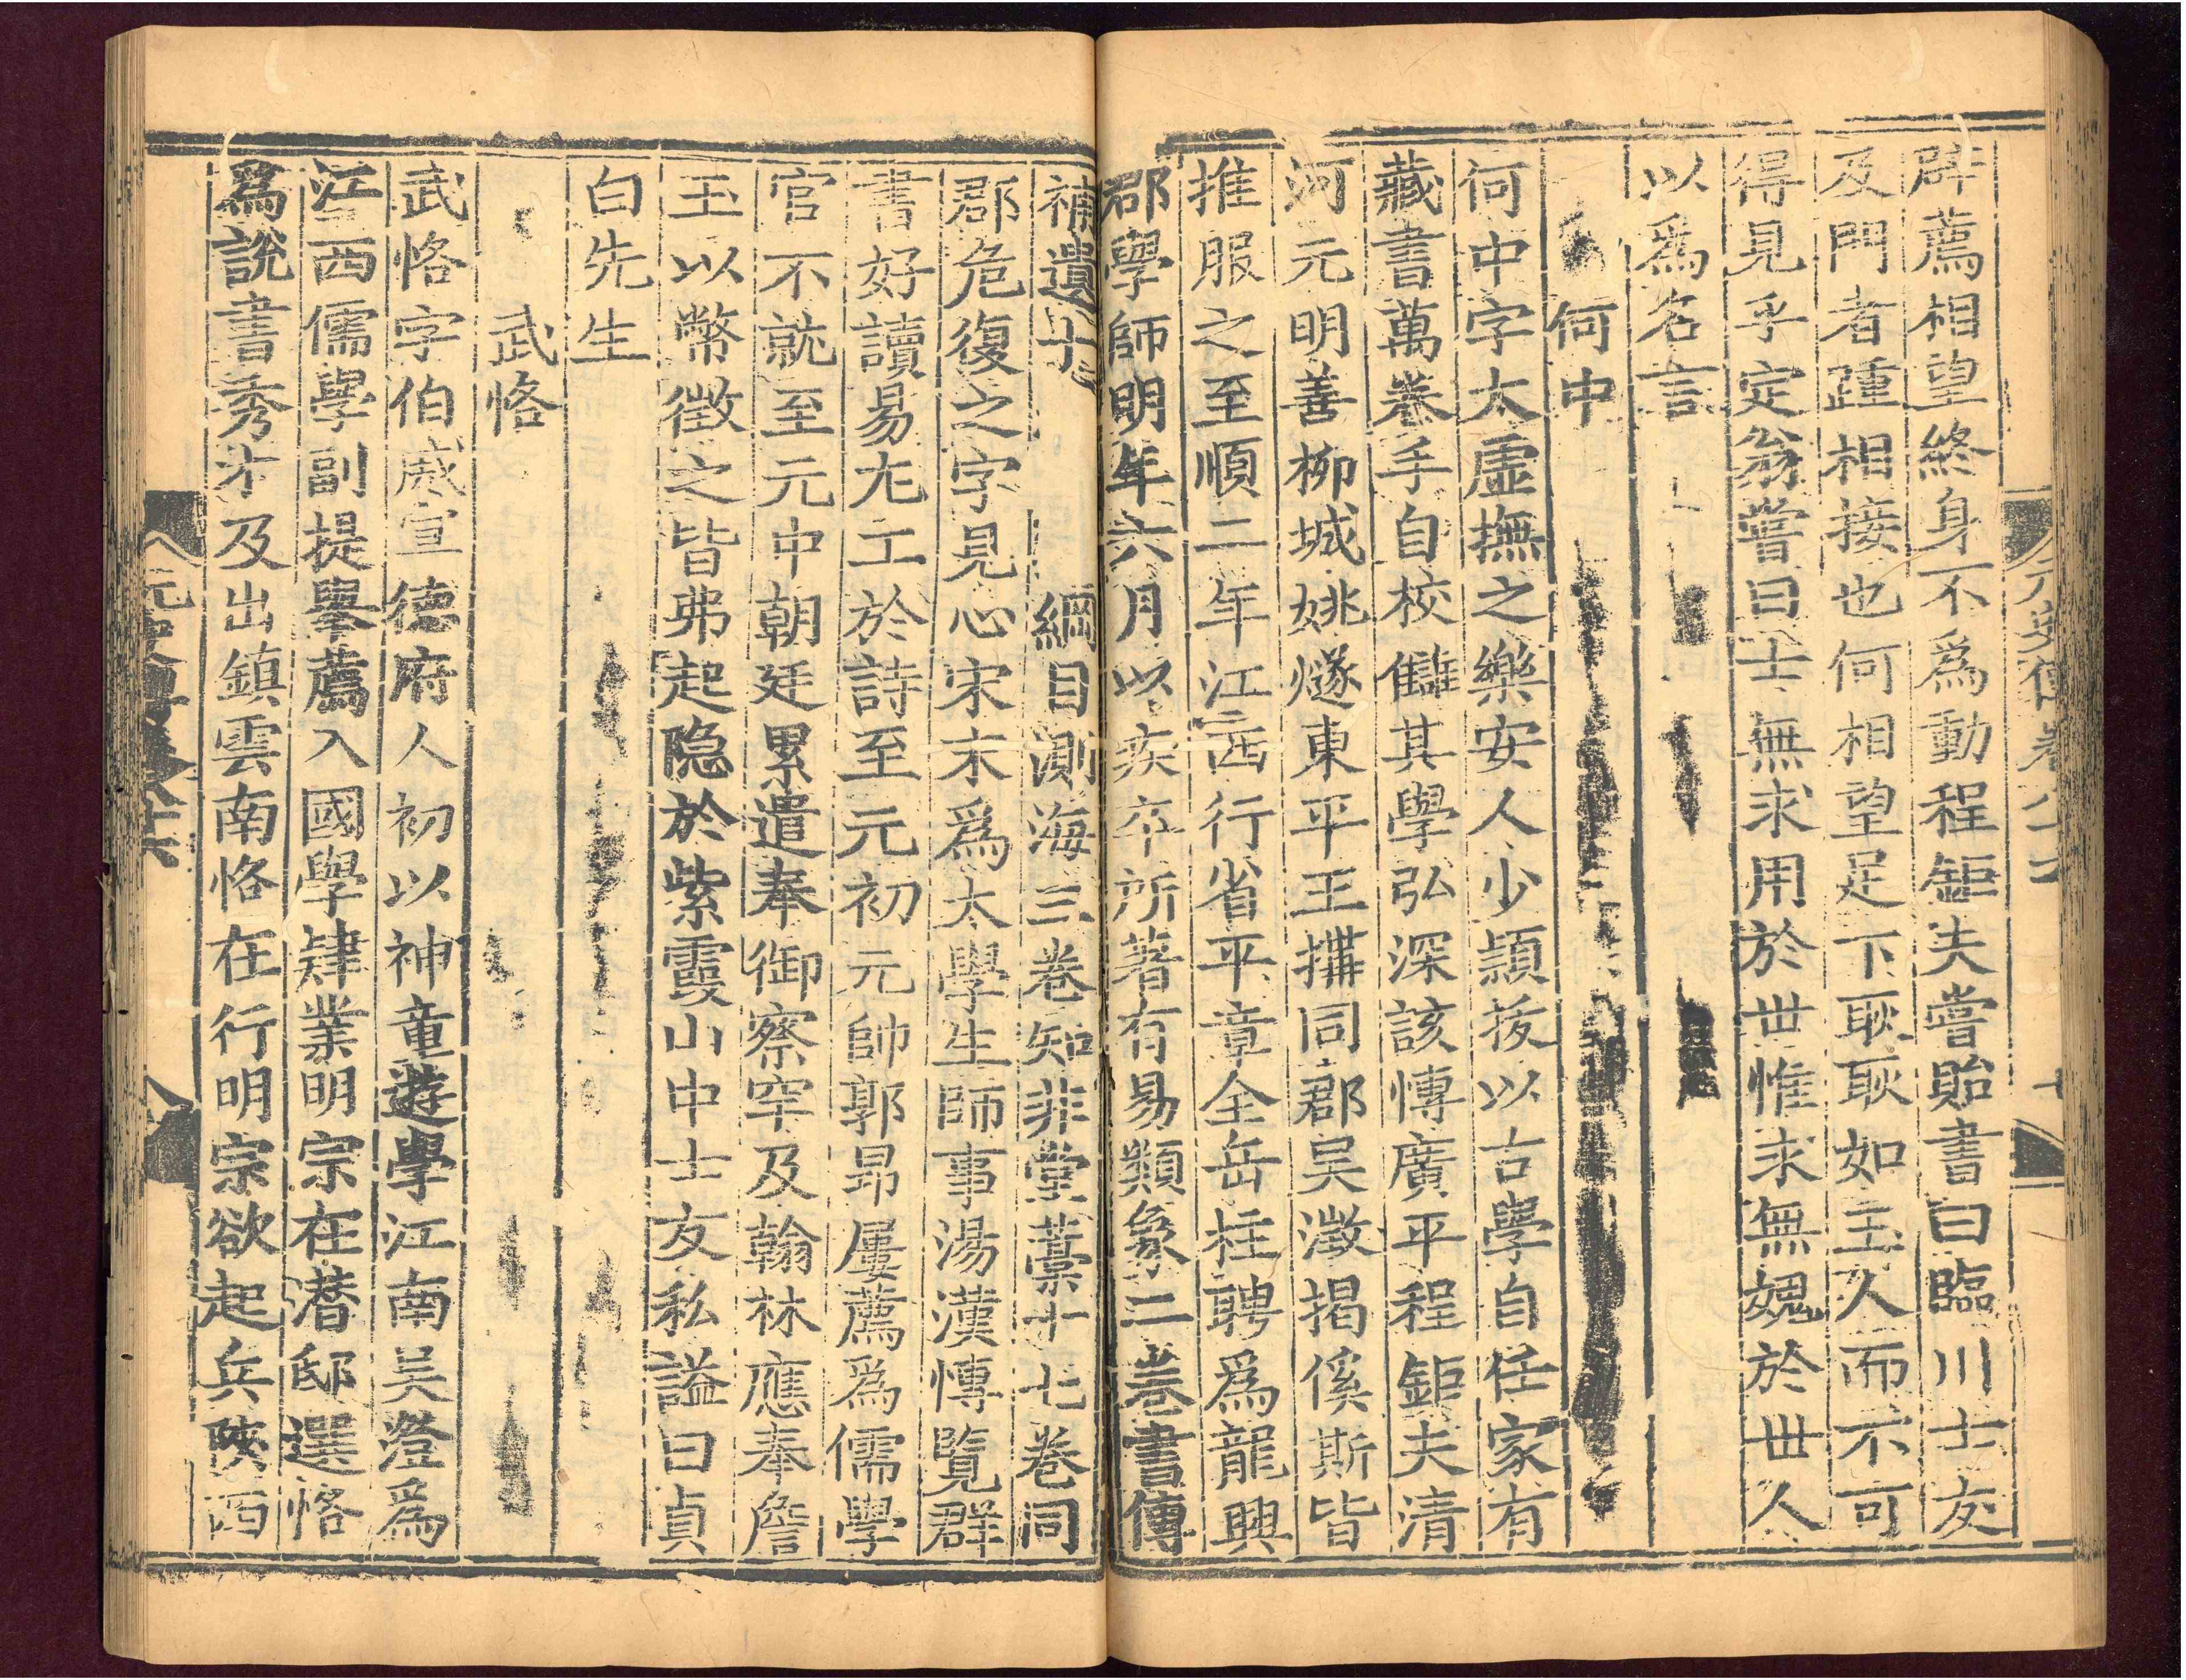 辟薦相望終身不爲動程鉅夫嘗貽書曰臨川士友
及門者踵相接也何相望足下耿耿如玉人而不可
得見乎定翁嘗曰士無求用於世惟求無媿於世人
以爲名言
何中
何中字太虛撫之樂安人少穎拔以古學自任家有
藏書萬卷手自校讎其學弘深該慱廣平程鉅夫清
河元明善柳城姚燧東平王搆同郡吳澂揭傒斯皆
推服之至順二年江西行省平章全岳柱聘爲龍興
郡學師明年六月以疾卒所著有易類象二卷書傳
補遺十 綱目測海三卷知非堂藁十七卷同
郡危復之字見心宋末爲太學生師事湯漢慱覽群
書好讀易尤工於詩至元初元帥郭昂屢薦爲儒學
官不就至元中朝廷累遣奉御察罕及翰林應奉詹
玉以幣徵之皆弗起隐於紫霞山中士友私謚曰貞
白先生
武恪
武恪字伯威宣德府人初以神童遊學江南吴澄爲
江西儒學副提舉薦入國學肄業明宗在潛邸選恪
爲說書秀才及出鎮雲南恪在行明宗欲起兵陝西